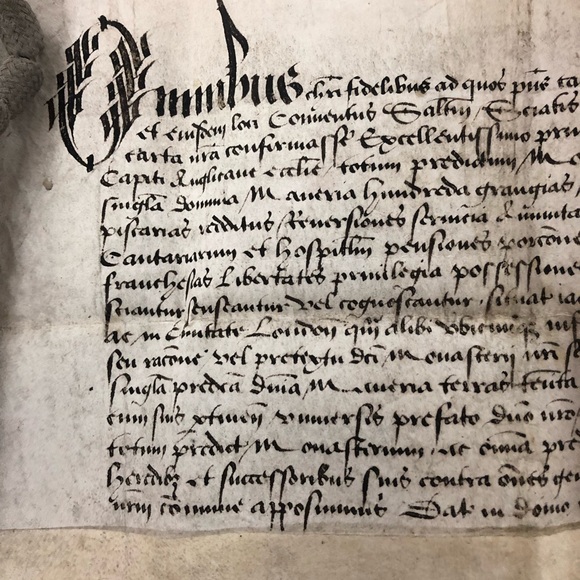 Omnibus chri fidelibus ad quos pns
et eiusdem loci Conventus Saltm Sciatis
carta nra confirmasse Excellentissimo
Capiti Anglicane ecclie totum predictum
singla dominia Maneria hundreda grangias
piscarias redditus Reversiones servicia &
Cantariarum et hospitlm pensiones porcone
franchesias Libertates privilegia possessione
sciantur censeantur vel cognoscantur
ac in Civitate London qm alibi
seu racone vel pretextu dci Monasterii nri
singla predca dnia Maneria terras tenta
cum suis ptinen universis prefato dno nro
totum predict Monasterium ac omnia pre
heredibz et successoribus suis contra omes gen
nrm comune apposuimus Dat in domo